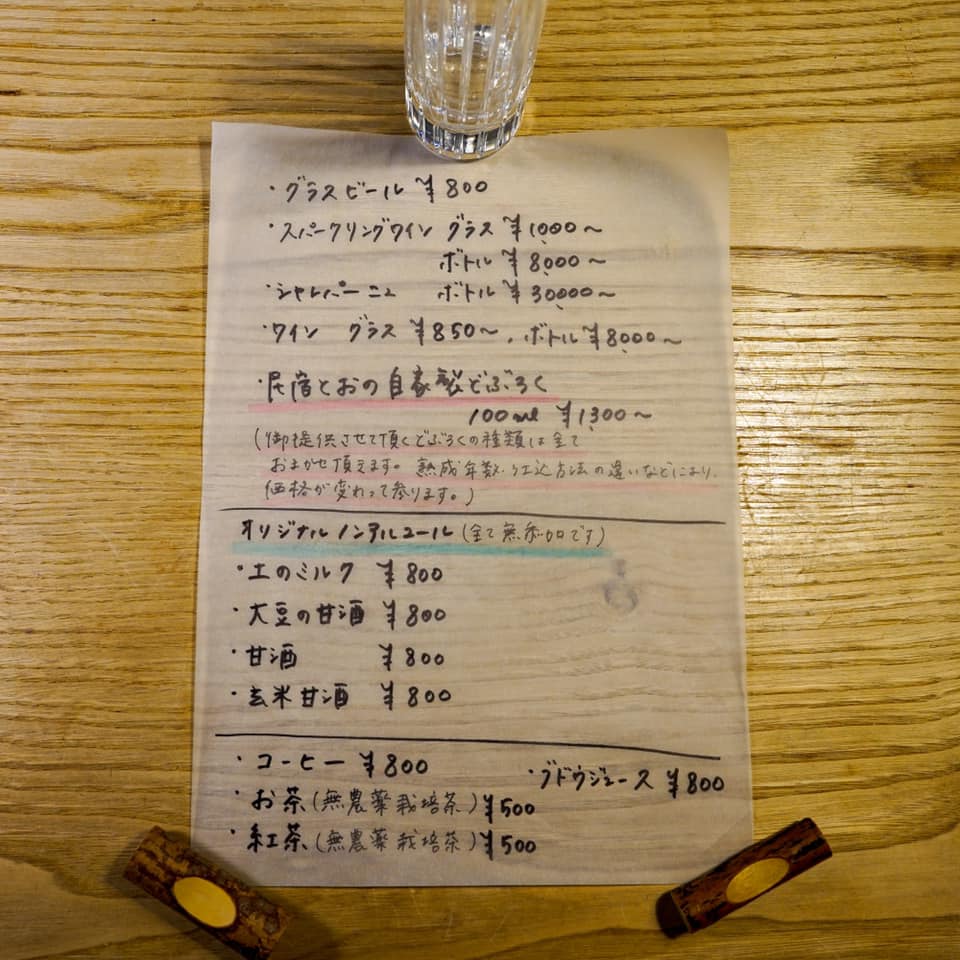 ・グラスビール ¥800
・スパークリングワイン グラス ¥1,000～
ボトル ¥8,000～
・シャンパーニュ ボトル ¥30,000～
・ワイン グラス ¥850～, ボトル ¥8,000～
・民宿とおの自家製どぶろく
100ml ¥1,300～
(御提供させて頂くどぶろくの種類は全て
おまかせ頂きます。熟成年数・仕込方法の違いなどにより、
価格が変わって参ります。)
オリジナルノンアルコール(全て無添加です)
・土のミルク ¥800
・大豆の甘酒 ¥800
・甘酒 ¥800
・玄米甘酒 ¥800
・コーヒー ¥800
・ブドウジュース ¥800
・お茶(無農薬栽培茶) ¥500
・紅茶(無農薬栽培茶) ¥500